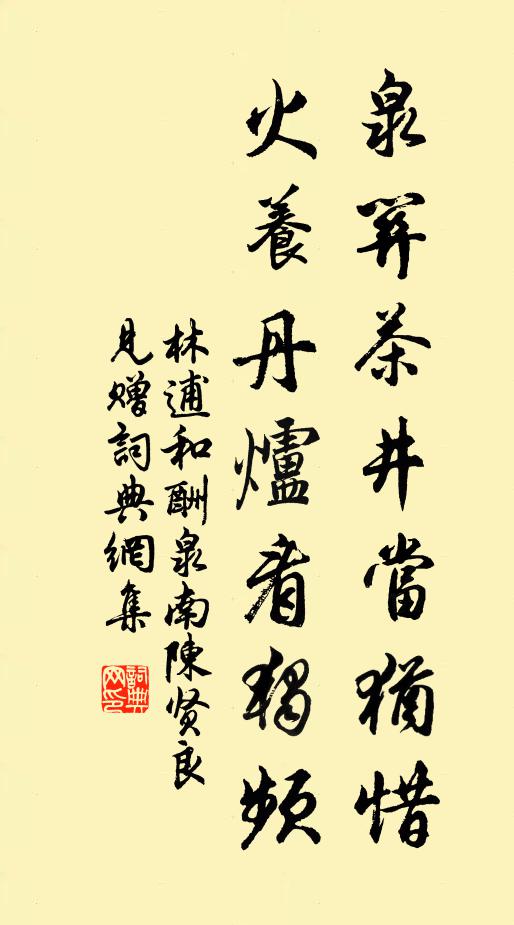 泉茶井當猶惜
火養丹爐看獨頻
林逋和酬泉南陳贤良
見贈詞典網集
詞典网印